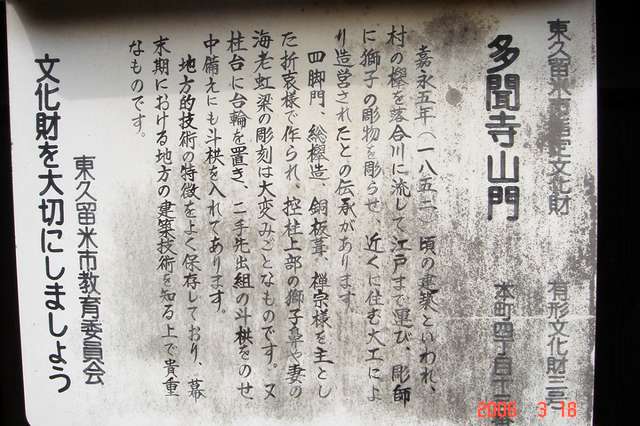 東久留米市指定文化財 有形文化財三号
多聞寺山門
本町四丁目十
嘉永五年(一八五二)頃の建築といわれ、
村の欅を落合川に流して江戸まで運び、彫師
に獅子の彫物を彫らせ、近くに住む大工によ
り造営されたとの伝承があります。
四脚門、総欅造、銅板葺、禅宗様を主とし
た折衷様で作られ、控柱上部の獅子鼻や妻の
海老虹梁の彫刻は大変みごとなものです。又
柱台に台輪を置き、二手先出組の斗栱をのせ、
中備えにも斗栱を入れてあります。
地方的技術の特徴をよく保存しており、幕
末期における地方の建築技術を知る上で貴重
なものです。
東久留米市教育委員会
文化財を大切にしましょう
2006 3 18